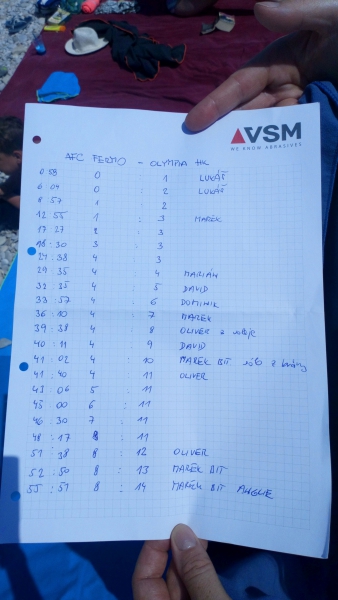 VSM
WE KNOW ABRASIVES
AFC FERTO - OLYMPIA HK
0 58 0 : 1 LUKÁŠ
6 04 0 : 2 LUKÁŠ
8 57 1 : 2
12 55 1 : 3 MAREK
17 27 2 : 3
18 : 30 3 : 3
21 : 38 4 : 3
29 35 4 : 4 MARIÁN
32 : 25 4 : 5 DAVID
33 : 57 4 : 6 DOMINIK
36 : 10 4 : 7 MAREK
39 : 38 4 : 8 OLIVER z
40 : 11 4 : 9 DAVID
41 : 02 4 : 10 MAREK BIT z brány
41 : 40 4 : 11 OLIVER
43 : 06 5 : 11
45 00 6 : 11
46 : 30 7 : 11
48 : 17 8 : 11
51 : 38 8 : 12 OLIVER
52 : 50 8 : 13 MAREK BIT
55 : 51 8 : 14 MAREK BIT ANGLIE